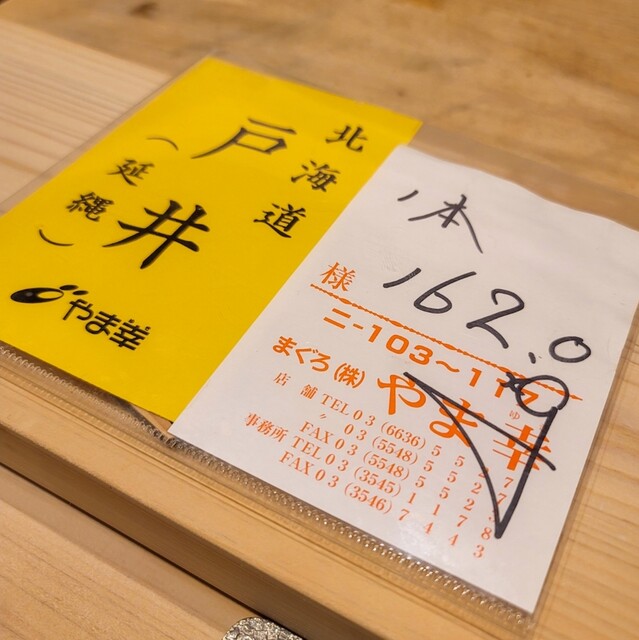 北海道
戸井
（延縄）
やま幸
1本
162.0
様
ニ-103～117
まぐろ(株) やま幸
店舗 TEL 03 (6636) 5
〃 03 (5548) 5
FAX 03 (5548) 5
事務所 TEL 03 (3545) 1
FAX 03 (3546) 7